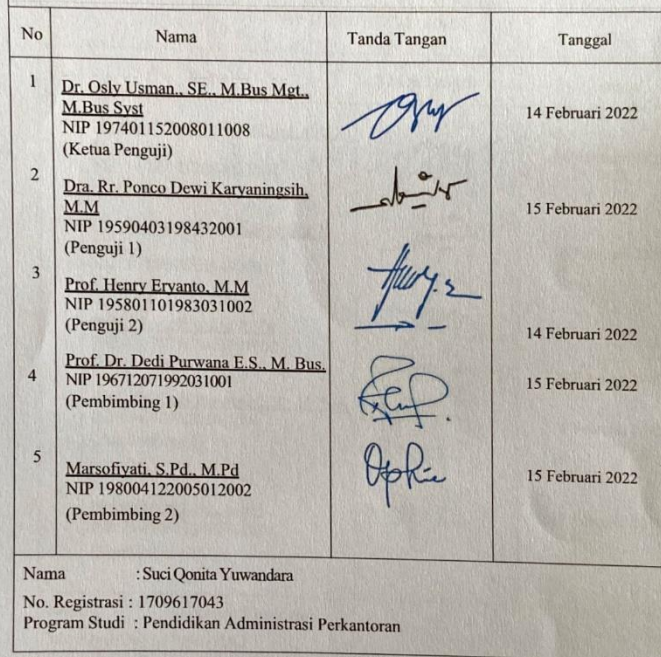 No Nama Tanda Tangan Tanggal
1 Dr. Osly Usman., SE., M.Bus Mgt.,
M.Bus Syst
NIP 197401152008011008
(Ketua Penguji)
14 Februari 2022
2 Dra. Rr. Ponco Dewi Karyaningsih,
M.M
NIP 19590403198432001
(Penguji 1)
15 Februari 2022
3 Prof. Henry Eryanto, M.M
NIP 195801101983031002
(Penguji 2)
14 Februari 2022
4 Prof. Dr. Dedi Purwana E.S., M. Bus.
NIP 196712071992031001
(Pembimbing 1)
15 Februari 2022
5 Marsofiyati, S.Pd., M.Pd
NIP 198004122005012002
(Pembimbing 2)
Ophie
15 Februari 2022
Nama : Suci Qonita Yuwandara
No. Registrasi : 1709617043
Program Studi : Pendidikan Administrasi Perkantoran